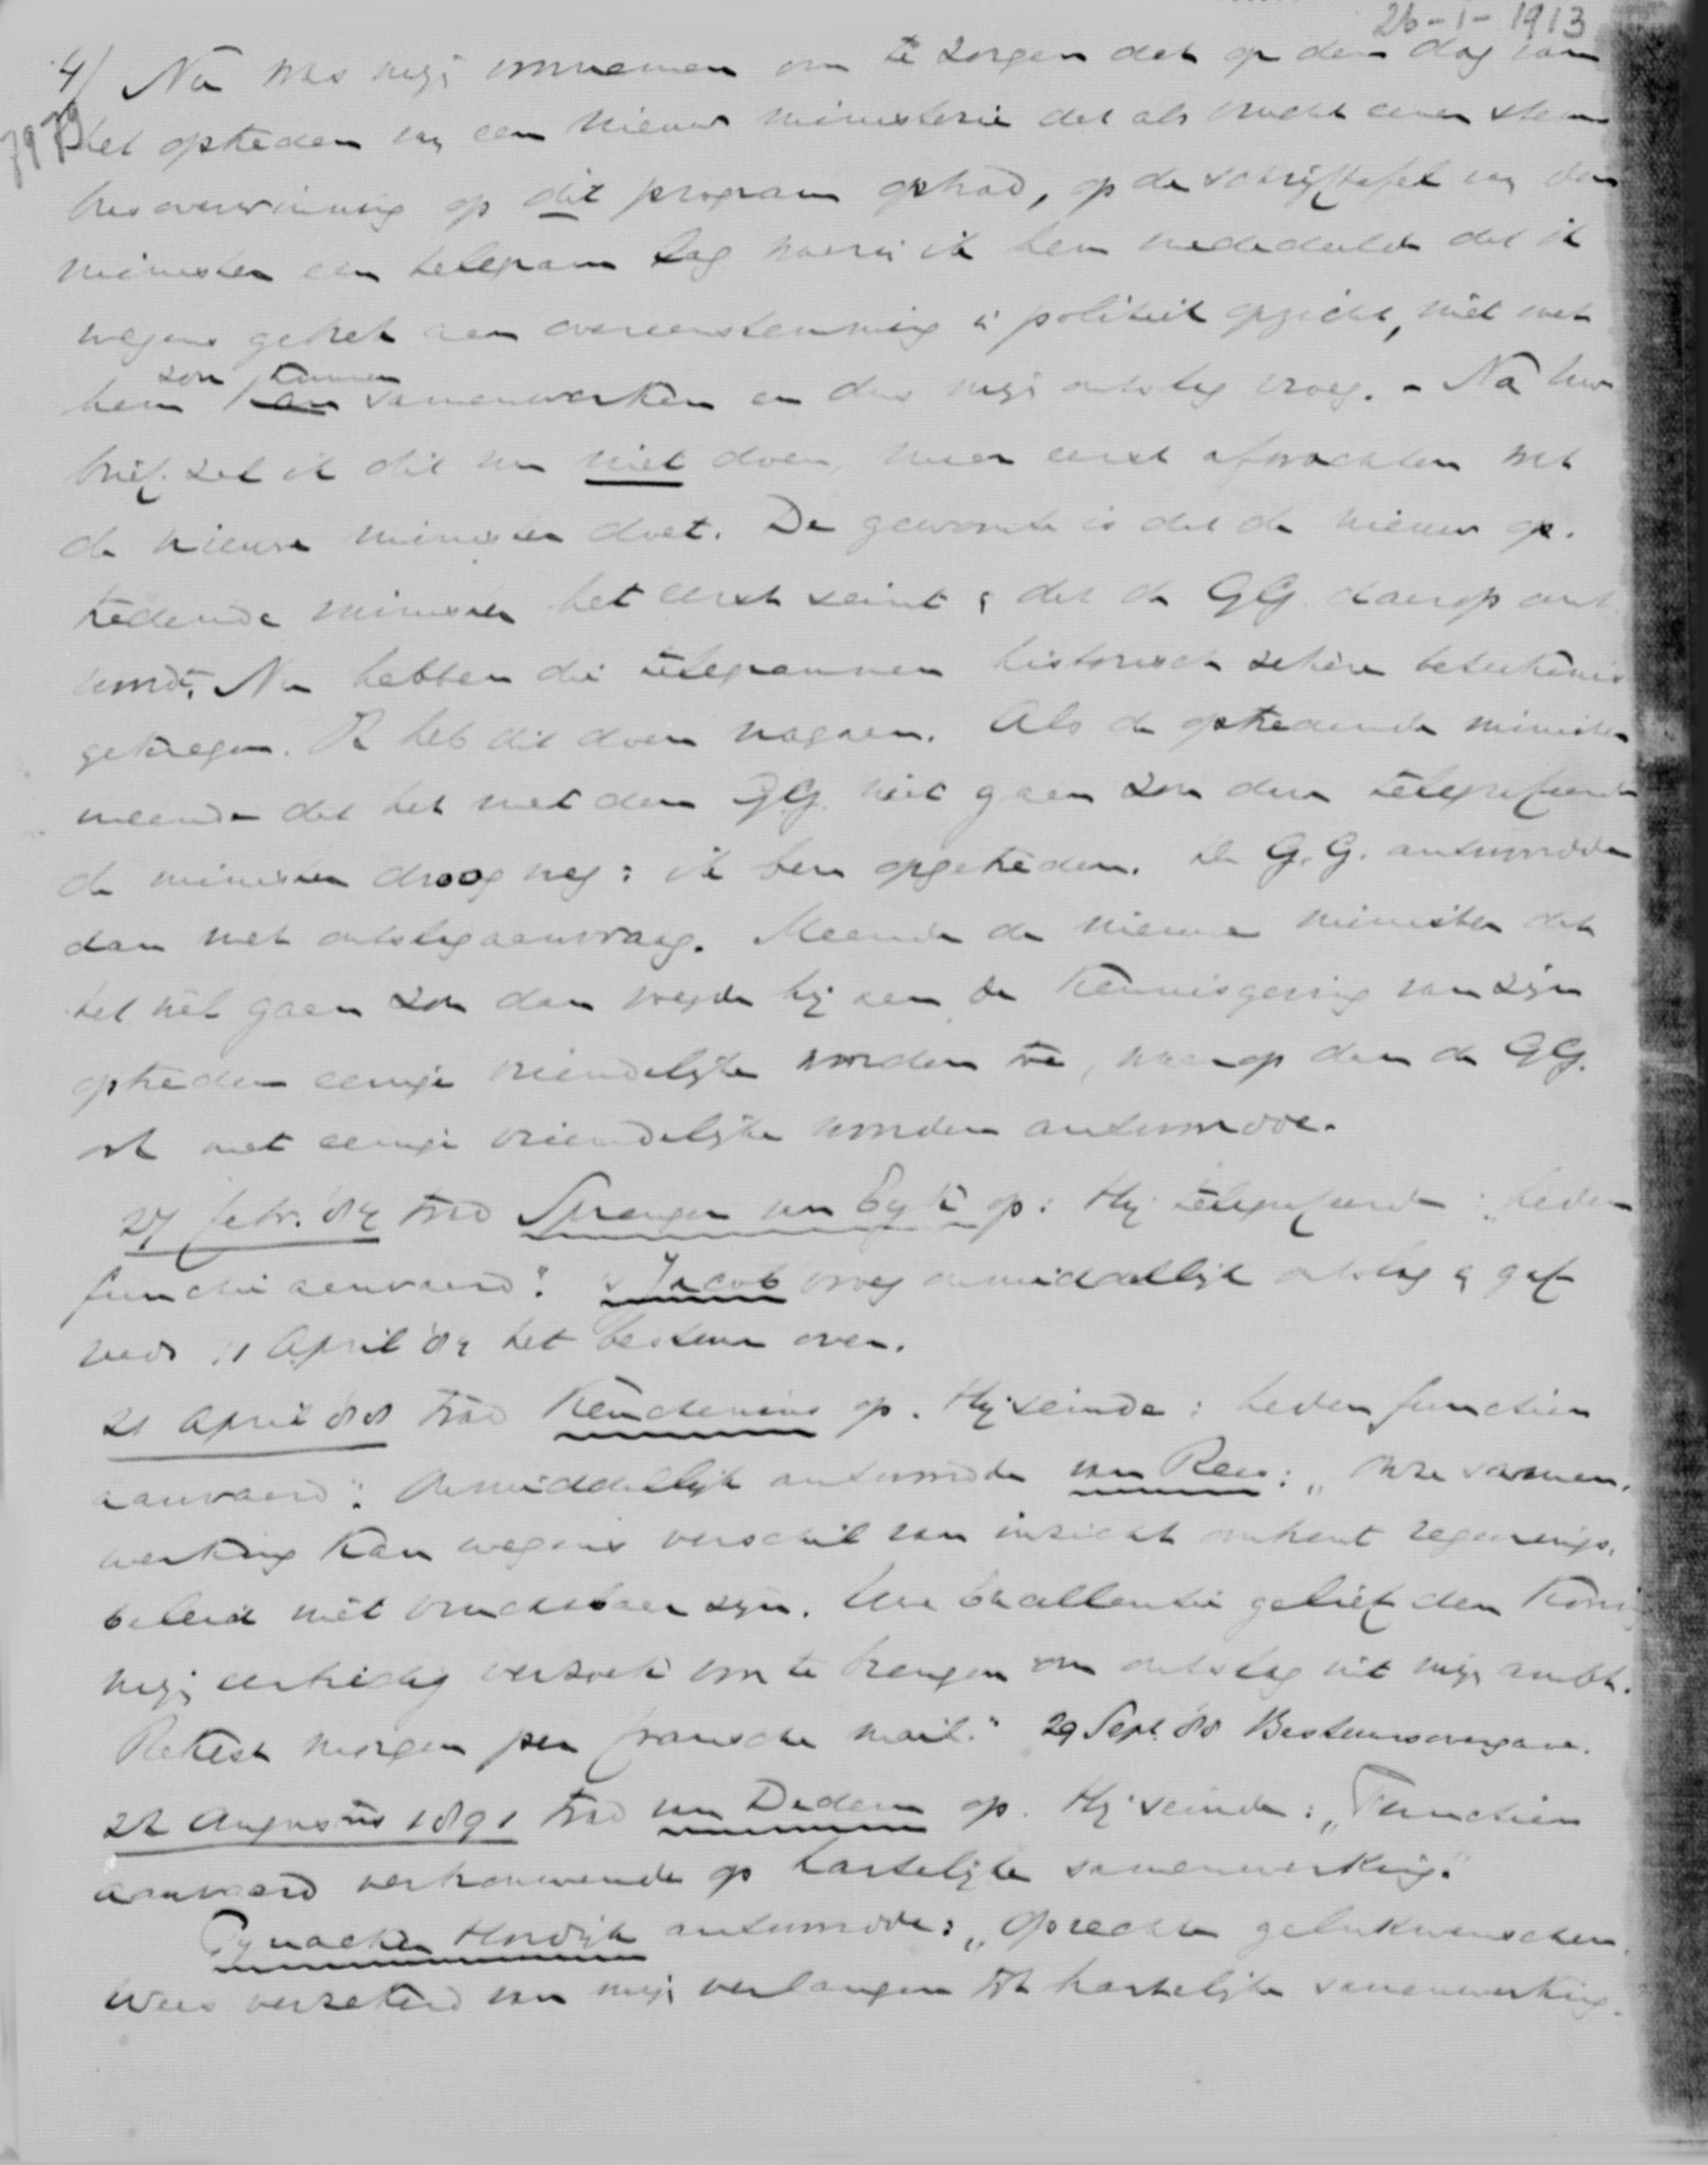 26-1-1913
4/ Nu was mijn voornemen om te zorgen dat op den dag van
7979
het optreden van een nieuw ministerie dat als vrucht eener stem
busoverwinning op dit program optrad, op de schrijftafel van den
minister een telegram lag waarin ik hem mededeelde dat ik
wegens gebrek aan overeenstemming in politiek opzicht, niet met
zou kunnen
hem kan samenwerken en dus mijn ontslag vroeg. - Na uw
brief zal ik dit nu niet doen, maar eerst afwachten wat
de nieuwe minister doet. De gewoonte is dat de nieuw op-
tredende minister het eerst seint & dat de GG. daarop ant
woordt. Nu hebben die telegrammen historisch zekere beteekenis
gekregen. Ik heb dit doen nagaan. Als de optredende minister
meende dat het met den GG. niet gaan zou dan telegrafeerde
de minister droog weg: ik ben opgetreden. De G.G. antwoordde
dan met ontslagaanvraag. Meende de nieuwe minister dat
het wèl gaan zou dan voegde hij aan de kennisgeving van zijn
optreden eenige vriendelijke woorden toe, waarop dan de GG.
ook met eenige vriendelijke woorden antwoordde.
27 febr. '84 trad Sprenger van Eyk op: Hij telegrafeerde: „heden
functie aanvaard". 's Jacob vroeg onmiddellijk ontslag & gaf
reeds 11 April '84 het bestuur over.
21 April '88 trad Keuchenius op. Hij seinde: heden functien
aanvaard". Onmiddellijk antwoordde van Rees: „Onze samen-
werking kan wegens verschil van inzicht omtrent regeerings-
beleid niet vruchtbaar zijn. Uwe Excellentie gelieve den Koning
mijn eerbiedig verzoek over te brengen om ontslag uit mijn ambt.
Rekest morgen per fransche mail." 29 Sept. '88 Bestuursovergave.
22 Augustus 1891 trad van Dedem op. Hij seinde: „Functien
aanvaard vertrouwende op hartelijke samenwerking."
Pynacker Hordijk antwoordde: „Oprechte gelukwenschen.
Wees verzekerd van mijn verlangen tot hartelijke samenwerking.